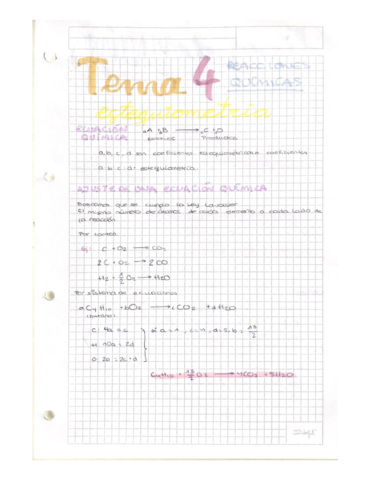 Tema 4
REACCIONES
QUÍMICAS
estequiometría
ECUACIÓN
QUÍMICA
aA + bB → cC + dD
Productos
a, b, c, d son coeficientes estequiométricos o coeficientes
a, b, c, d: estequiometría
AJUSTE DE UNA ECUACIÓN QUÍMICA
que se cumpla la Ley Lavoisier
El mismo número de átomos de cada elemento a cada lado de
la reacción
Por tanteo:
Ej: C + O2 → CO2
2C + O2 → 2CO
H2 + 1/2 O2 → H2O
Por sistema de ecuaciones
aC4H10 + bO2 → cCO2 + dH2O
(butano)
C: 4a = c
H: 10a = 2d
O: 2b = 2c + d
si a = 1, c = 4, d = 5, b = 13/2
C4H10 + 13/2 O2 → 4CO2 + 5H2O